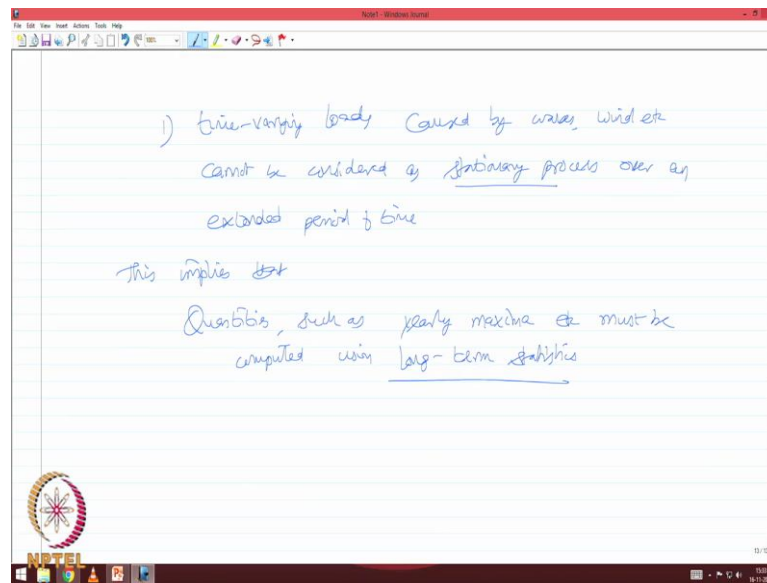 Note1 - Windows Journal
File Edit View Insert Actions Tools Help
1) time-varying loads caused by waves, wind etc
cannot be considered as stationary process over an
extended period of time
This implies that
Quantities, such as yearly maxima etc must be
computed using long-term statistics
NPTEL